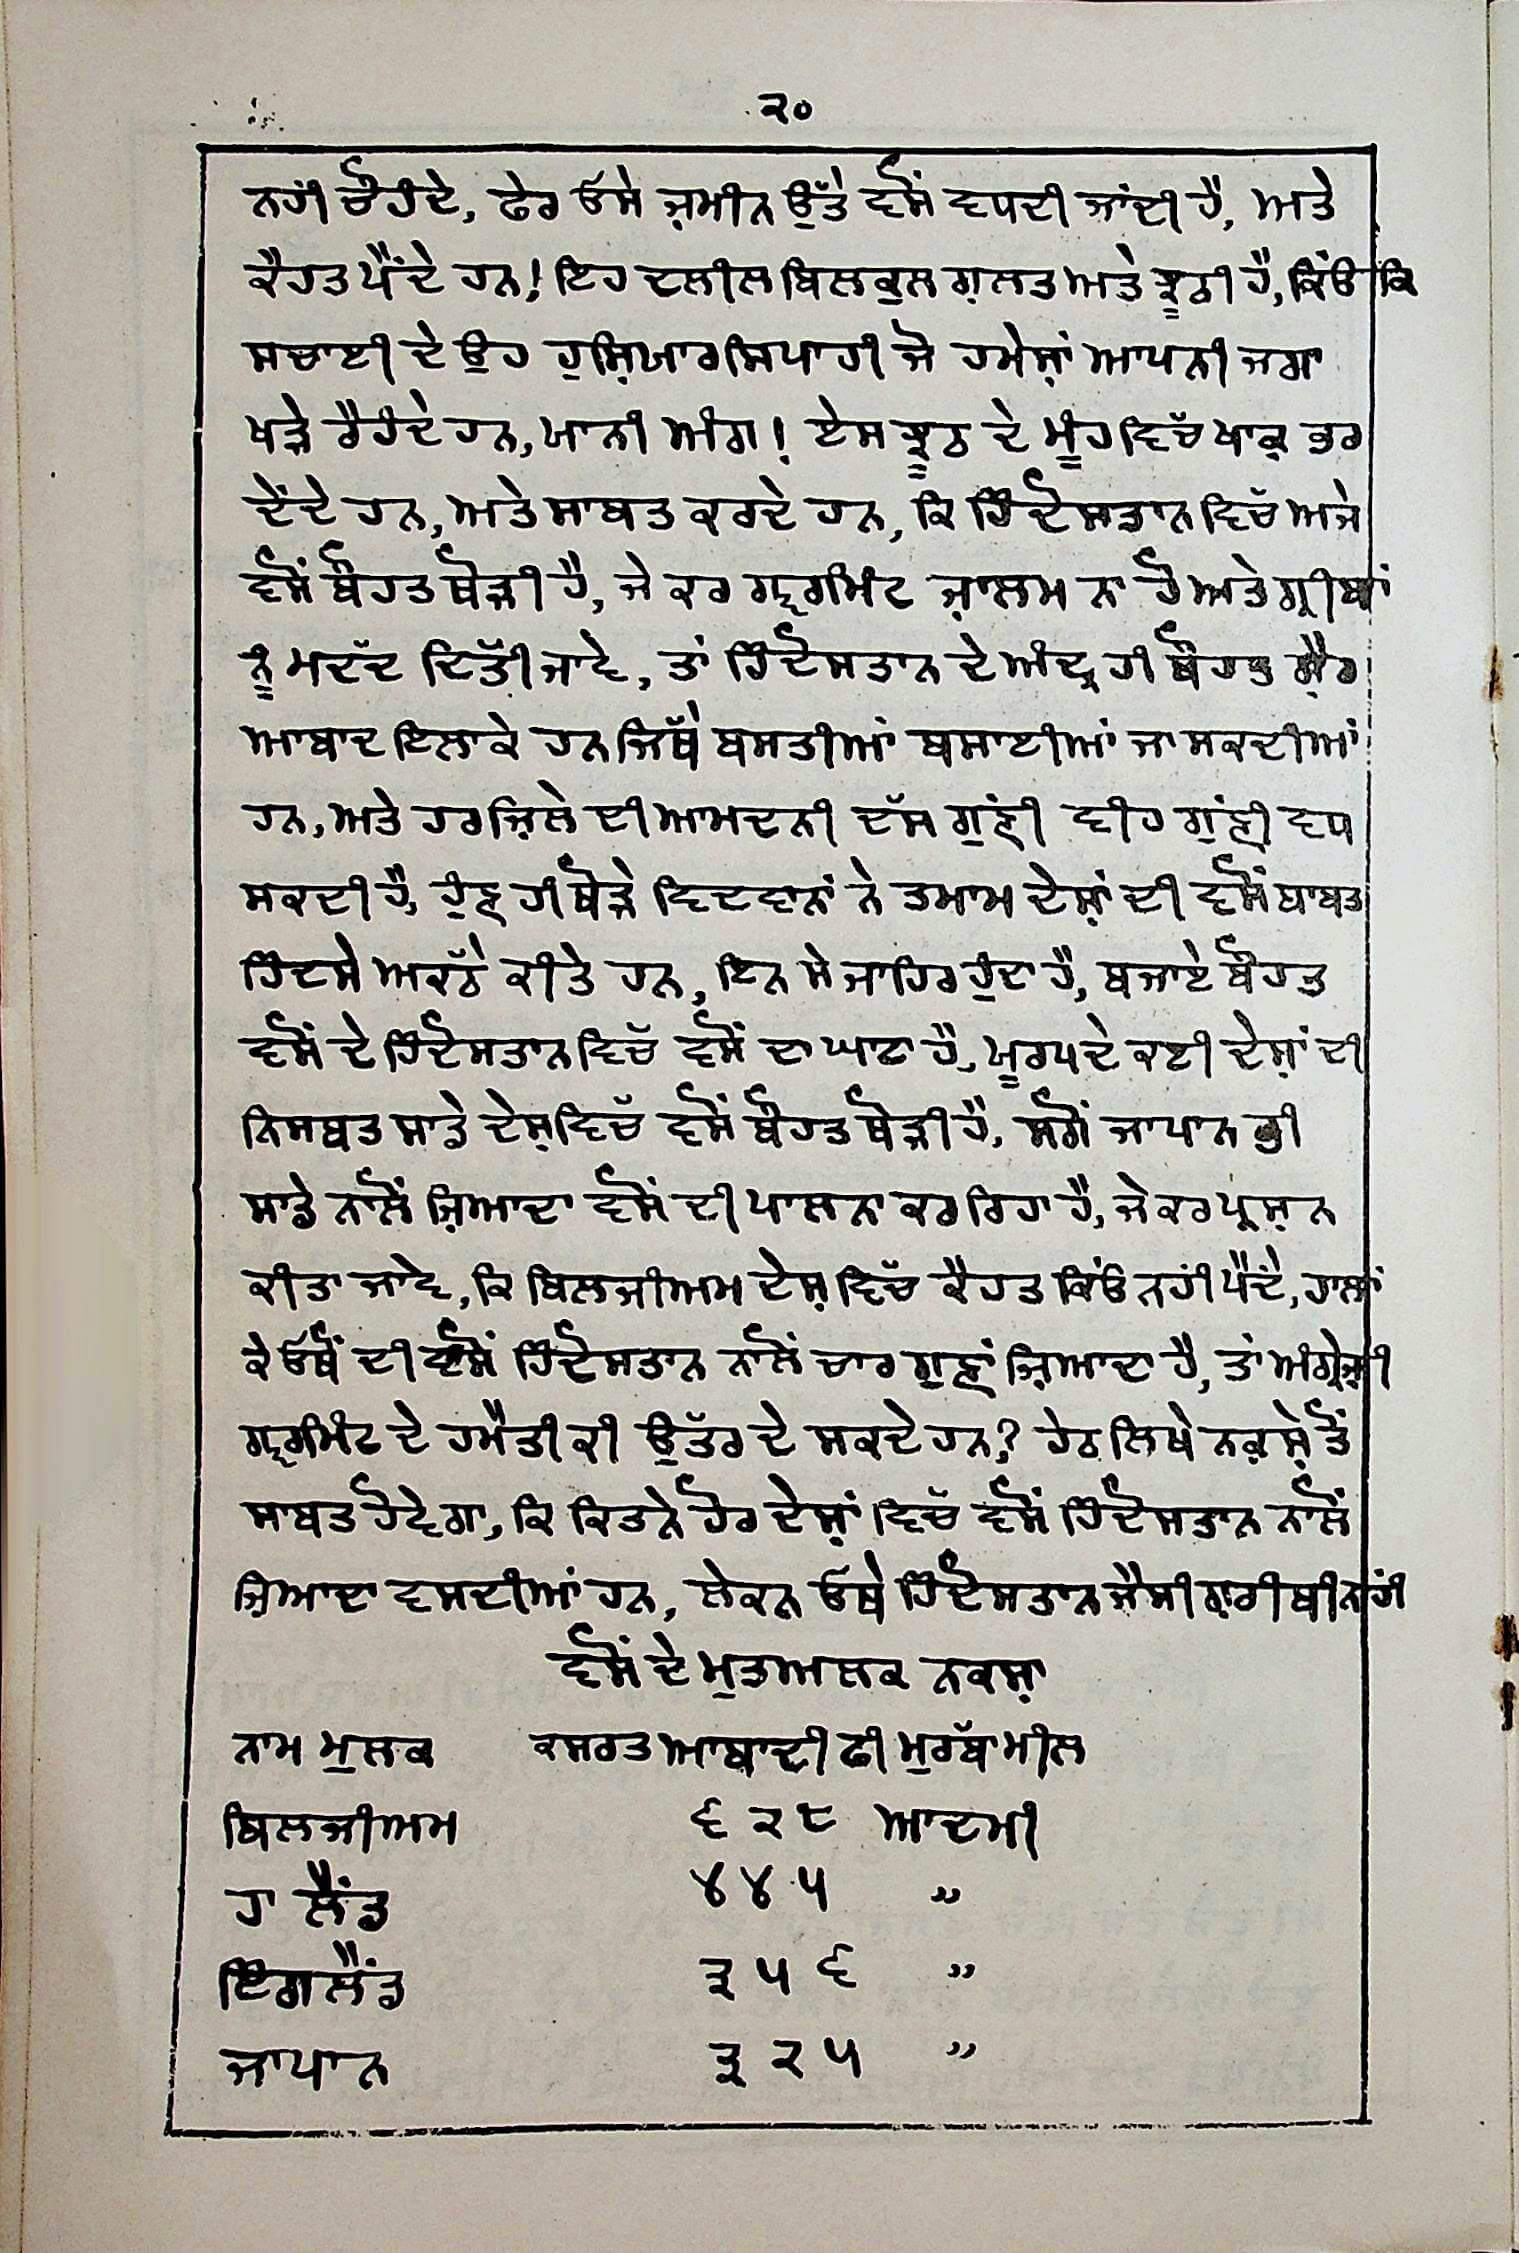 ੨੦
ਨਹੀਂ ਚੌਹੰਦੇ, ਫੇਰ ਓਸੇ ਜ਼ਮੀਨ ਉੱਤੇ ਵਸੋਂ ਵਧਦੀ ਜਾਂਦੀ ਹੈ, ਅਤੇ
ਕੈਹਤ ਪੈਂਦੇ ਹਨ! ਇਹ ਦਲੀਲ ਬਿਲਕੁਲ ਗ਼ਲਤ ਅਤੇ ਝੂਠੀ ਹੈ, ਕਿੰਓ ਕਿ
ਸਚਾਈ ਦੇ ਉਹ ਹੁਸ਼ਿਯਾਰ ਸਿਪਾਹੀ ਜੋ ਹਮੇਸ਼ਾਂ ਆਪਨੀ ਜਗਾ
ਖੜੇ ਰੈਹੰਦੇ ਹਨ, ਯਾਨੀ ਅੰਗ! ਏਸ ਝੂਠ ਦੇ ਮੂੰਹ ਵਿਚੱ ਖਾਕ਼ ਭਰ
ਦੇਂਦੇ ਹਨ, ਅਤੇ ਸਾਬਤ ਕਰਦੇ ਹਨ, ਕਿ ਹਿੰਦੋਸਤਾਨ ਵਿਚੱ ਅਜੇ
ਵਸੋਂ ਬੌਹਤ ਥੋੜੀ ਹੈ, ਜੇ ਕਰ ਗਵ੍ਰਮਿੰਟ ਜ਼ਾਲਮ ਨਾ ਹੋ ਅਤੇ ਗ੍ਰੀਬਾਂ
ਨੂੰ ਮਦੱਦ ਦਿਤੱੀ ਜਾਵੇ, ਤਾਂ ਹਿੰਦੋਸਤਾਨ ਦੇ ਅੰਦ੍ਰ ਹੀ ਬੌਹਤ ਗ਼ੈਰ
ਆਬਾਦ ਇਲਾਕੇ ਹਨ ਜਿਥੱੇ ਬਸਤੀਆਂ ਬਸਾਈਆਂ ਜਾ ਸਕਦੀਆਂ
ਹਨ, ਅਤੇ ਹਰ ਜ਼ਿਲੇ ਦੀ ਆਮਦਨੀ ਦੱਸ ਗੁਣੀਂ ਵੀਹ ਗੁਣੀਂ ਵਧ
ਸਕਦੀ ਹੈ, ਹੁੰਣ ਹੀ ਥੋੜੇ ਵਿਦਵਾਨਾਂ ਨੇ ਤਮਾਮ ਦੇਸ਼ਾਂ ਦੀ ਵਸੋਂ ਬਾਬਤ
ਹਿੰਦਸੇ ਅਕਠੱੇ ਕੀਤੇ ਹਨ, ਇਨ ਸੇ ਜਾਹਿਰ ਹੁੰਦਾ ਹੈ, ਬਜਾਏ ਬੌਹਤ
ਵਸੋਂ ਦੇ ਹਿੰਦੋਸਤਾਨ ਵਿਚੱ ਵਸੋਂ ਦਾ ਘਾਟਾ ਹੈ, ਯੂਰਪ ਦੇ ਕਈ ਦੇਸ਼ਾਂ ਦੀ
ਨਿਸਬਤ ਸਾਡੇ ਦੇਸ਼ ਵਿਚੱ ਵਸੋਂ ਬੌਹਤ ਥੋੜੀ ਹੈ, ਸਗੋਂ ਜਾਪਾਨ ਭੀ
ਸਾਡੇ ਨਾਲੋਂ ਜ਼ਿਆਦਾ ਵਸੋਂ ਦੀ ਪਾਲਨਾ ਕਰ ਰਿਹਾ ਹੈ, ਜੇ ਕਰ ਪ੍ਰਸ਼ਨ
ਕੀਤਾ ਜਾਵੇ, ਕਿ ਬਿਲਜੀਅਮ ਦੇਸ਼ ਵਿਚੱ ਕੈਹਤ ਕਿੰਓ ਨਹੀਂ ਪੈਂਦੇ, ਹਾਲਾਂ
ਕੇ ਓਥੋਂ ਦੀ ਵਸੋਂ ਹਿੰਦੋਸਤਾਨ ਨਾਲੋਂ ਚਾਰ ਗੁਣਾਂ ਜ਼ਿਆਦਾ ਹੈ, ਤਾਂ ਅੰਗ੍ਰੇਜ਼ੀ
ਗਵ੍ਰਮਿੰਟ ਦੇ ਹਮੈਤੀ ਕੀ ਉਤੱਰ ਦੇ ਸਕਦੇ ਹਨ? ਹੇਠ ਲਿਖੇ ਨਕ਼ਸ਼ੇ ਤੋਂ
ਸਾਬਤ ਹੋਵੇਗਾ, ਕਿ ਕਿਤਨੇ ਹੋਰ ਦੇਸ਼ਾਂ ਵਿਚੱ ਵਸੋਂ ਹਿੰਦੋਸਤਾਨ ਨਾਲੋਂ
ਜ਼ਿਆਦਾ ਵਸਦੀਆਂ ਹਨ, ਲੇਕਨ ਓਥੇ ਹਿੰਦੋਸਤਾਨ ਜੈਸੀ ਗ਼ਰੀਬੀ ਨਹੀਂ
ਵਸੋਂ ਦੇ ਮੁਤਅਲਕ ਨਕਸ਼ਾ
ਨਾਮ ਮੁਲਕ ਕਸਰਤ ਆਬਾਦੀ ਫੀ ਮੁਰਬੱਾ ਮੀਲ
ਬਿਲਜੀਅਮ ੬੨੮ ਆਦਮੀ
ਹਾਲੈਂਡ ੪੪੫ ”
ਇੰਗਲੈਂਡ ੩੫੬ ”
ਜਾਪਾਨ ੩੨੫ ”